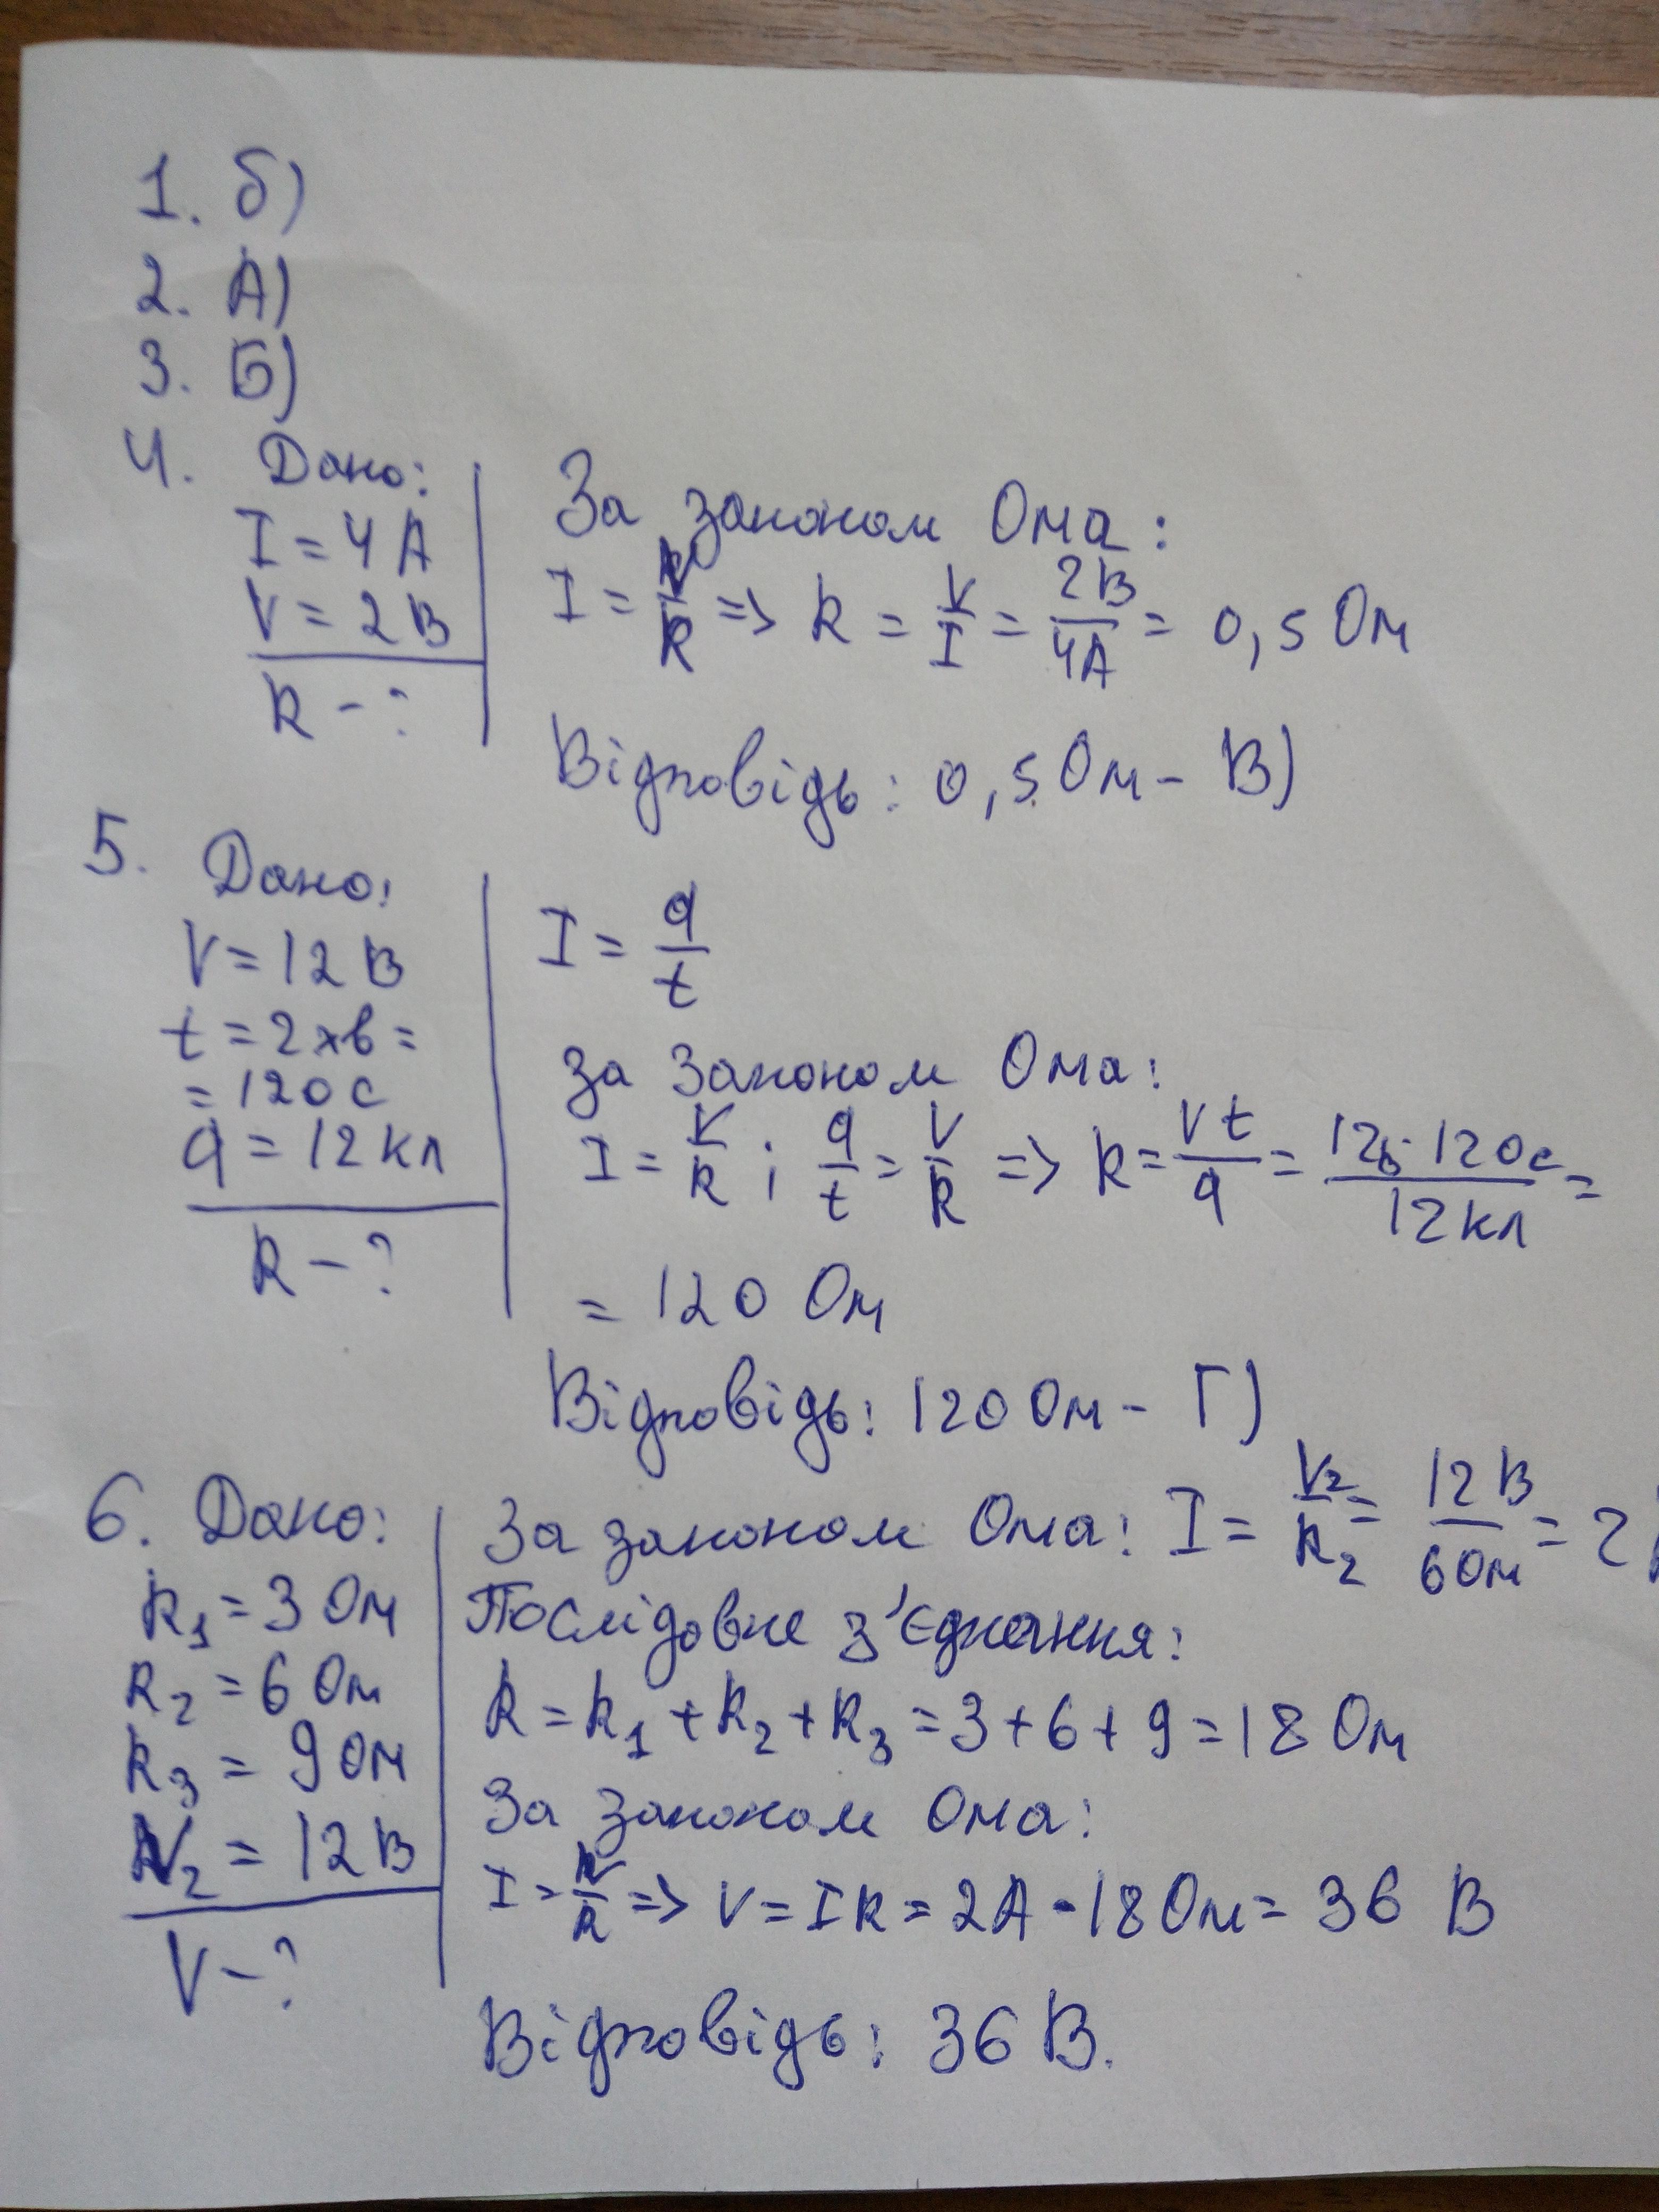 1. б)
2. А)
3. Б)
4. Дано:
I = 4 А
V = 2 В
R - ?
За законом Ома:
I = V/R => R = V/I = 2В/4А = 0,5 Ом
Відповідь: 0,5 Ом - В)
5. Дано:
V = 12 В
t = 2 хв =
= 120 с
q = 12 кл
R - ?
I = q/t
За законом Ома:
I = V/R ; q/t = V/R => R = Vt/q = 12В · 120с/12кл =
= 120 Ом
Відповідь: 120 Ом - Г)
6. Дано:
R₁ = 3 Ом
R₂ = 6 Ом
R₃ = 9 Ом
V₂ = 12 В
V - ?
За законом Ома: I = V₂/R₂ = 12 В/6 Ом = 2
Послідовне з'єднання:
R = R₁ + R₂ + R₃ = 3 + 6 + 9 = 18 Ом
За законом Ома:
I = V/R => V = IR = 2А · 18 Ом = 36 В
Відповідь: 36 В.